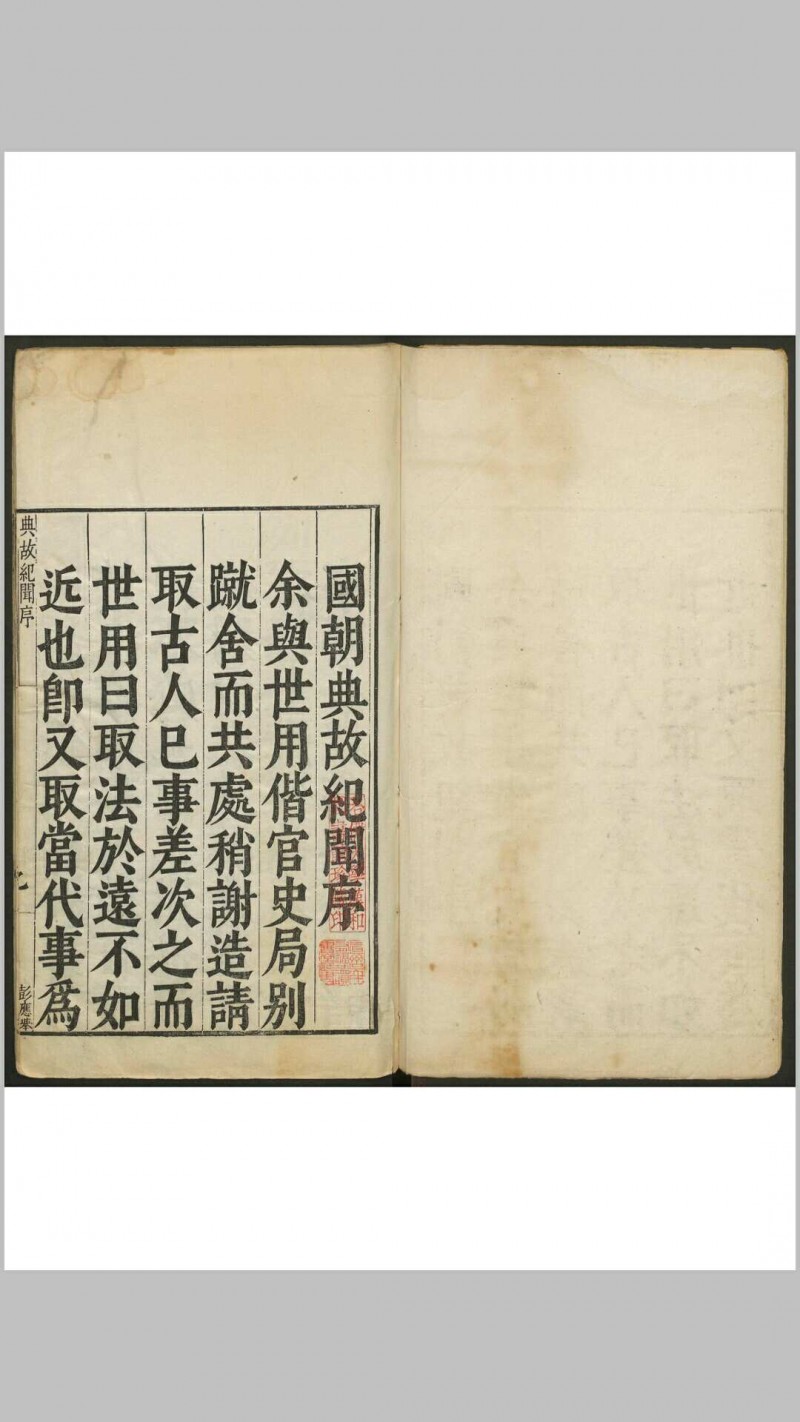 國朝典故紀聞序
余與世用偕官史局別
蹴舍而共處稍謝造請
取古人已事差次之而
世用曰取法於遠不如
近也卽又取當代事爲
典故紀聞序